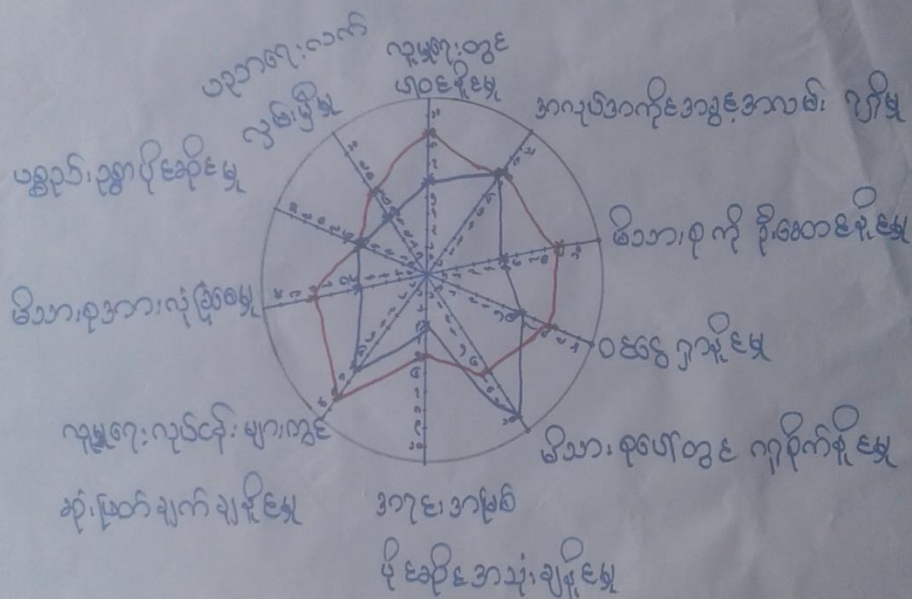 လူမှုရေးတွင်
ပါဝင်နိုင်မှု
အလုပ်အကိုင်အခွင့်အလမ်း ရရှိမှု
မိသားစုကို ဦးဆောင်နိုင်မှု
ဝင်ငွေ ရှာနိုင်မှု
မိသားစုပေါ်တွင် ဂရုစိုက်နိုင်မှု
အရင်းအမြစ်
ပိုင်ဆိုင်အသုံးချနိုင်မှု
လူမှုရေးလုပ်ငန်းများတွင်
ဆုံးဖြတ်ချက်ချနိုင်မှု
မိသားစုအားလုံခြုံစေမှု
ပစ္စည်းဥစ္စာပိုင်ဆိုင်မှု
ပညာရေးလက်
လှမ်းမှီမှု